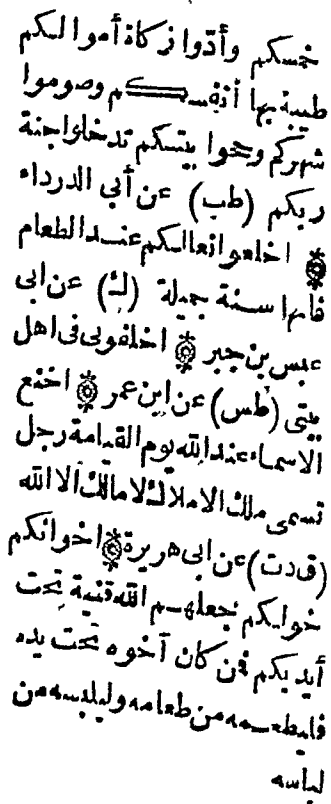 خمسكم وأدّوا زكاة أموالكم
طيبة بها أنفسكم وصوموا
شهركم وحجوا بيتكم تدخلوا جنة
ربكم (طب) عن أبى الدرداء
۞ اخلعوا نعالكم عند الطعام
فانها سنة جميلة (ك) عن ابى
عبس بن جبر ۞ اخلفونى فى اهل
بيتى (طس) عن ابن عمر ۞ اخنع
الاسماء عند الله يوم القيامة رجل
تسمى ملك الاملاك لا مالك الا الله
(ق دت) عن ابى هريرة ۞ اخوانكم
خولكم جعلهم الله قنية تحت
أيديكم فمن كان أخوه تحت يده
فليطعمه من طعامه وليلبسه من
لباسه